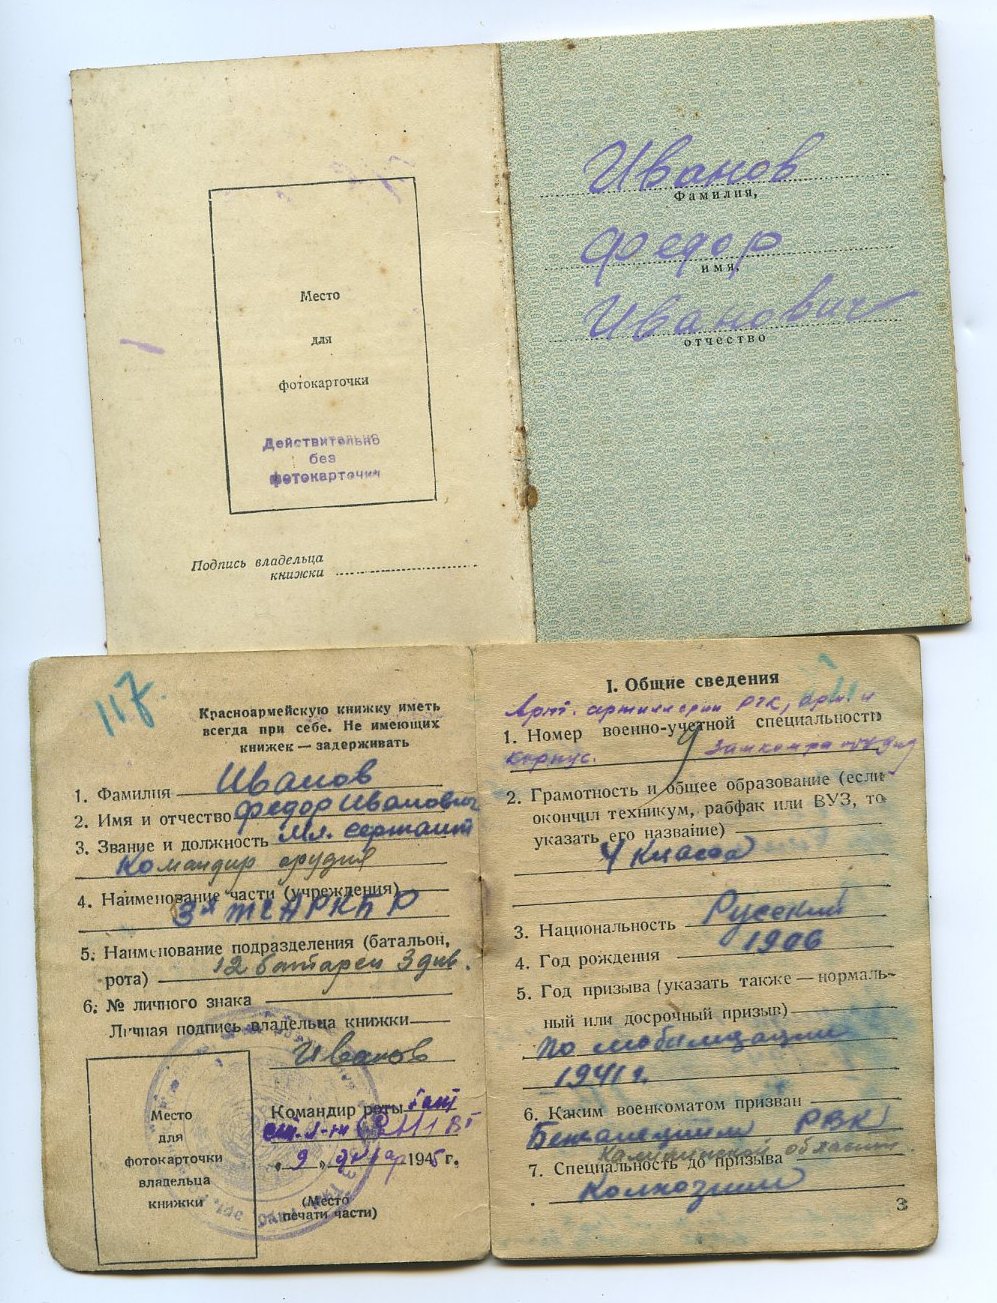 Место
для
фотокарточки
Действительно
без
фотокарточки
Подпись владельца
книжки
Иванов
Фамилия,
Федор
имя,
Иванович
отчество
117
Красноармейскую книжку иметь
всегда при себе. Не имеющих
книжек — задерживать
1. Фамилия Иванов
2. Имя и отчество Федор Иванович
3. Звание и должность Мл. сержант
Командир орудия
4. Наименование части (учреждения)
5. Наименование подразделения (батальон,
рота) 12 батарея 3 див.
6. № личного знака
Личная подпись владельца книжки
Иванов
Место
для
фотокарточки
владельца
книжки
Командир роты
"9" 1945 г.
(Место
печати части)
I. Общие сведения
Арт. артиллерии РГК, арм. и
1. Номер военно-учетной специальности
корпус.
2. Грамотность и общее образование (если
окончил техникум, рабфак или ВУЗ, то
указать его название)
4 класса
3. Национальность Русский
4. Год рождения 1906
5. Год призыва (указать также — нормаль-
ный или досрочный призыв)
По мобилизации
1941 г.
6. Каким военкоматом призван
РВК
Калининской области.
7. Специальность до призыва
Колхозник
3